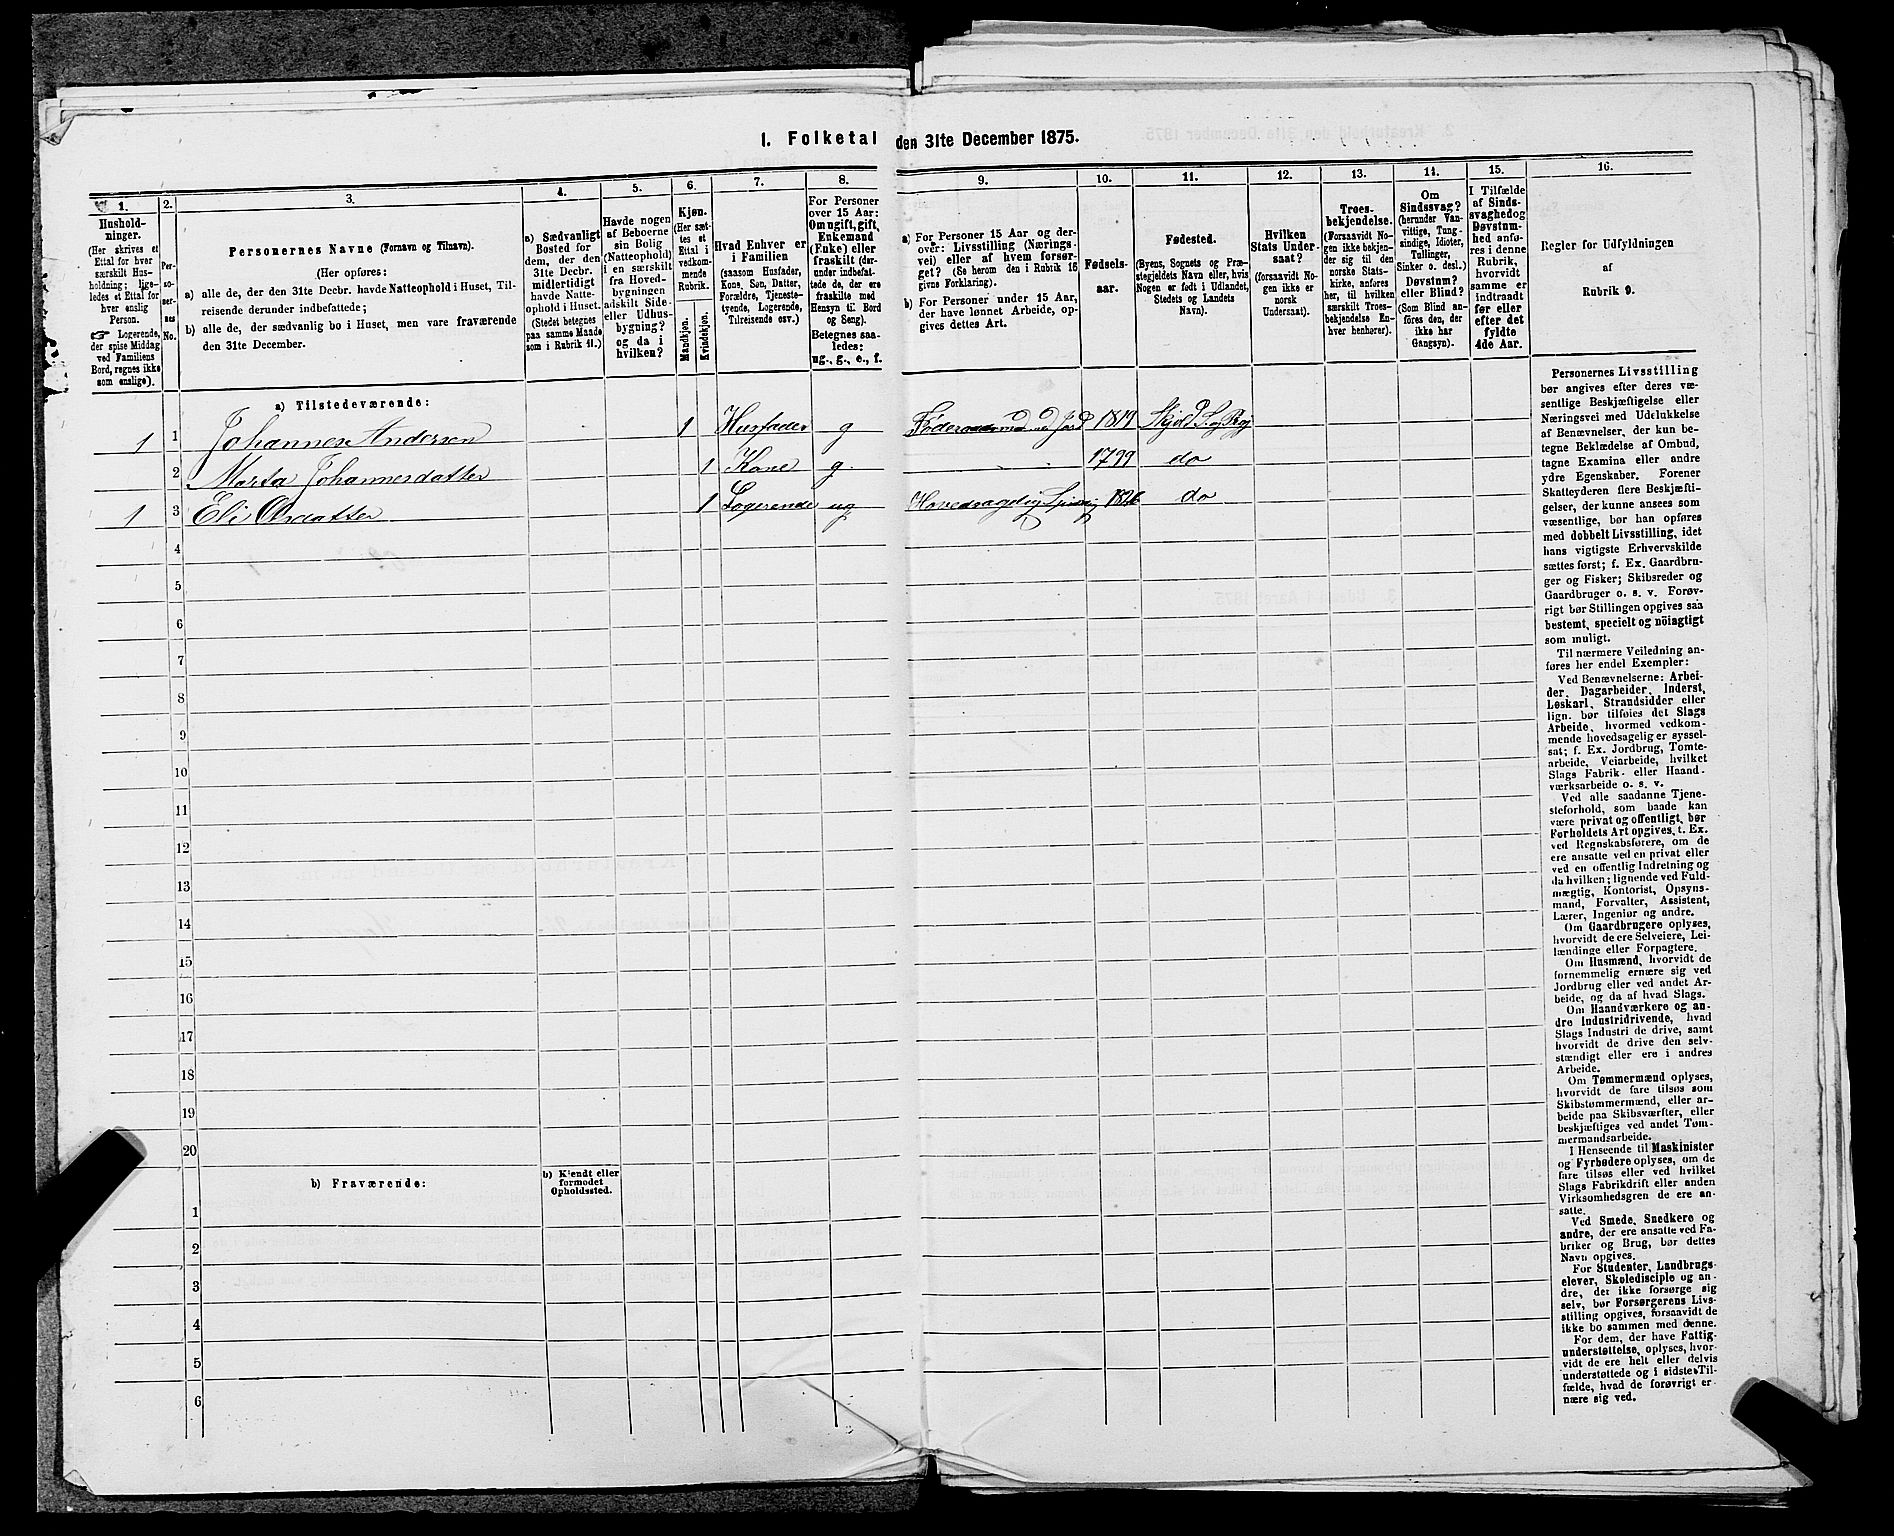 1. Folketal den 31te December 1875.
1.
Hushold-
ninger.
(Her skrives et
Ettal for hver
særskilt Hus-
holdning; lige-
ledes et Ettal for
hver enslig
Person.
☞ Logerende,
der spise Middag
ved Familiens
Bord, regnes ikke
som enslige).
2.
Per-
so-
ner-
nes
No.
3.
Personernes Navne (Fornavn og Tilnavn).
(Her opføres:
a) alle de, der den 31te Decbr. havde Natteophold i Huset, Til-
reisende derunder indbefattede;
b) alle de, der sædvanlig bo i Huset, men vare fraværende
den 31te December.
4.
a) Sædvanligt
Bosted for
dem, der den
31te Decbr.
midlertidigt
havde Natte-
ophold i Huset.
(Stedet betegnes
paa samme Maade
som i Rubrik 11.)
5.
Havde nogen
af Beboerne
sin Bolig
(Natteophold)
i en særskilt
fra Hoved-
bygningen
adskilt Side-
eller Udhus-
bygning?
og da i
hvilken?
6.
Kjøn.
(Her sæt-
tes et
Ettal i
vedkom-
mende
Rubrik.
Mandkjøn.
Kvindekjøn.
7.
Hvad Enhver er
i Familien
(saasom Husfader,
Kone, Søn, Datter,
Forældre, Tjeneste-
tyende, Logerende,
Tilreisende osv.)
8.
For Personer
over 15 Aar:
Om ugift, gift,
Enkemand
(Enke) eller
fraskilt (der-
under indbefat-
tede de, der ere
fraskilte med
Hensyn til Bord
og Seng).
Betegnes saa-
ledes:
ug., g., e., f.
9.
a) For Personer 15 Aar og der-
over: Livsstilling (Nærings-
vei) eller af hvem forsør-
get? (Se herom den i Rubrik 16
givne Forklaring).
b) For Personer under 15 Aar,
der have lønnet Arbeide, op-
gives dettes Art.
10.
Fødsels-
aar.
11.
Fødested.
(Byens, Sognets og Præ-
stegjeldets Navn eller, hvis
Nogen er født i Udlandet,
Stedets og Landets
Navn).
12.
Hvilken
Stats Under-
saat?
(forsaavidt No-
gen ikke er
norsk
Undersaat).
13.
Troes-
bekjendelse.
(Forsaavidt No-
gen ikke bekjen-
der sig til den
norske Stats-
kirke, anføres
her, til hvilken
særskilt Troes-
bekjendelse En-
hver henhører).
14.
Om
Sindssvag?
(herunder Van-
vittige, Tung-
sindige, Idioter,
Tullinger,
Sinker o. desl.)
Døvstum?
eller Blind?
(Som Blind an-
føres den, der
ikke har
Gangsyn).
15.
I Tilfælde
af Sinds-
svaghed og
Døvstum-
hed anfø-
res i denne
Rubrik,
hvorvidt
samme er
indtraadt
før eller
efter det
fyldte
4de Aar.
16.
Regler for Udfyldningen
af
Rubrik 9.
a) Tilstedeværende:
1 1 Johannes Andersen 1 Husfader g Føderaadsmand Jord 1819 Skjold S. og Prgj
2 Marta Johannesdatter 1 Kone g. 1799 do
1 3 Eli Olsdatter 1 Logerende ug Hovedsagelig Spinding 1826 do
4
5
6
7
8
9
10
11
12
13
14
15
16
17
18
19
20
b) Fraværende:
b) Kjendt eller
formodet
Opholdssted.
1
2
3
4
5
6
Personernes Livsstilling
bør angives efter deres væ-
sentlige Beskjæftigelse eller
Næringsvei med Udelukkelse
af Benævnelser, der kun be-
tegne Beklædelse af Ombud,
tagne Examina eller andre
ydre Egenskaber. Forener
Skatteyderen flere Beskjæfti-
gelser, der kunne ansees som
væsentlige, bør han opføres
med dobbelt Livsstilling, idet
hans vigtigste Erhvervskilde
sættes først; f. Ex. Gaardbru-
ger og Fisker; Skibsreder og
Gaardbruger o. s. v. Forøv-
rigt bør Stillingen opgives saa
bestemt, specielt og nöiagtigt
som muligt.
Til nærmere Veiledning an-
føres her endel Exempler:
Ved Benævnelserne: Arbei-
der, Dagarbeider, Inderst,
Løskarl, Strandsidder eller
lign. bør tilføies det Slags
Arbeide, hvormed vedkom-
mende hovedsagelig er syssel-
sat; f. Ex. Jordbrug, Tomte-
arbeide, Veiarbeide, hvilket
Slags Fabrik- eller Haand-
værksarbeide o. s. v.
Ved alle saadanne Tjene-
steforhold, som baade kan
være privat og offentligt, bør
Forholdets Art opgives, t. Ex.
ved Regnskabsførere, om de
ere ansatte ved en privat eller
ved en offentlig Indretning og
da hvilken; lignende ved Fuld-
mægtig, Kontorist, Opsyns-
mand, Forvalter, Assistent,
Lærer, Ingeniør og andre.
Om Gaardbrugere oplyses,
hvorvidt de ere Selveiere, Lei-
lændinge eller Forpagtere.
Om Husmænd, hvorvidt de
fornemmelig ernære sig ved
Jordbrug eller ved andet Ar-
beide, og da af hvad Slags.
Om Haandværkere og an-
dre Industridrivende, hvad
Slags Industri de drive, samt
hvorvidt de drive den selv-
stændigt eller ere i andres
Arbeide.
Om Tømmermænd oplyses,
hvorvidt de fare tilsøs som
Skibstømmermænd, eller ar-
beide paa Skibsværfter, eller
beskjæftiges ved andet Tøm-
mermandsarbeide.
I Henseende til Maskinister
og Fyrbødere oplyses, om de
fare tilsøs eller ved hvilket
Slags Fabrikdrift eller anden
Virksomhedsgren de ere an-
satte.
Ved Smede, Snedkere og
andre, der ere ansatte ved Fa-
briker og Brug, bør dettes
Navn opgives.
For Studenter, Landbrugs-
elever, Skoledisciple og an-
dre, det ikke forsørge sig
selv, bør Forsørgerens Livs-
stilling opgives, forsaavidt de
ikke bo sammen med denne.
For dem, der have Fattig-
understøttelse, oplyses, hvor-
vidt de ere helt eller delvis
understøttede og i sidste Til-
fælde, hvad de forøvrigt er-
nære sig ved.